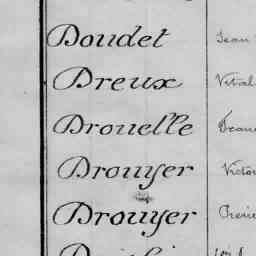 Doudet Jean
Dreux Vital
Drouelle
Drouyer Victor
Drouyer